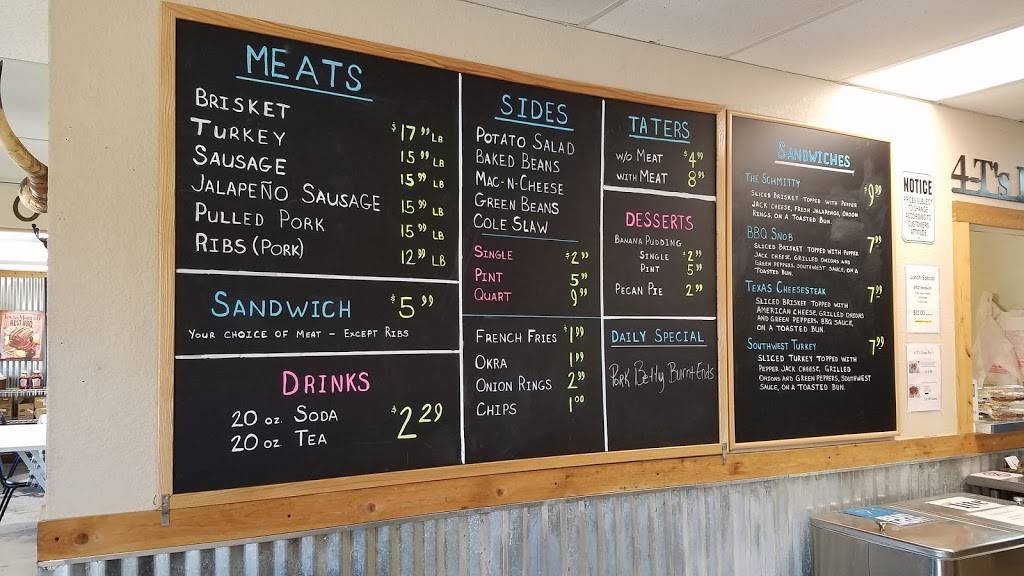 MEATS
BRISKET $17.99 LB
TURKEY 15.99 LB
SAUSAGE 15.99 LB
JALAPEÑO SAUSAGE 15.99 LB
PULLED PORK 15.99 LB
RIBS (PORK) 12.99 LB
SANDWICH $5.99
YOUR CHOICE OF MEAT - EXCEPT RIBS
DRINKS
20 OZ. SODA $2.29
20 OZ TEA
SIDES
POTATO SALAD
BAKED BEANS
MAC-N-CHEESE
GREEN BEANS
COLE SLAW
SINGLE $2.99
PINT 5.99
QUART 9.99
FRENCH FRIES $1.99
OKRA 1.99
ONION RINGS 2.99
CHIPS 1.00
TATERS
W/O MEAT $4.99
WITH MEAT 8.99
DESSERTS
BANANA PUDDING
SINGLE $2.99
PINT 5.99
PECAN PIE 2.99
DAILY SPECIAL
Pork Belly Burnt Ends
SANDWICHES
THE SCHMITTY $9.99
SLICED BRISKET TOPPED WITH PEPPER
JACK CHEESE, FRESH JALAPEÑOS, ONION
RINGS, ON A TOASTED BUN.
BBQ SNOB 7.99
SLICED BRISKET TOPPED WITH PEPPER
JACK CHEESE, GRILLED ONIONS AND
GREEN PEPPERS, SOUTHWEST SAUCE, ON A
TOASTED BUN.
TEXAS CHEESESTEAK 7.99
SLICED BRISKET TOPPED WITH
AMERICAN CHEESE, GRILLED ONIONS
AND GREEN PEPPERS, BBQ SAUCE,
ON A TOASTED BUN
SOUTHWEST TURKEY 7.99
SLICED TURKEY TOPPED WITH
PEPPER JACK CHEESE, GRILLED
ONIONS AND GREEN PEPPERS, SOUTHWEST
SAUCE, ON A TOASTED BUN.
NOTICE
PRICES SUBJECT
TO CHANGE
ACCORDING TO
CUSTOMERS
ATTITUDE
Lunch Special
4-T's